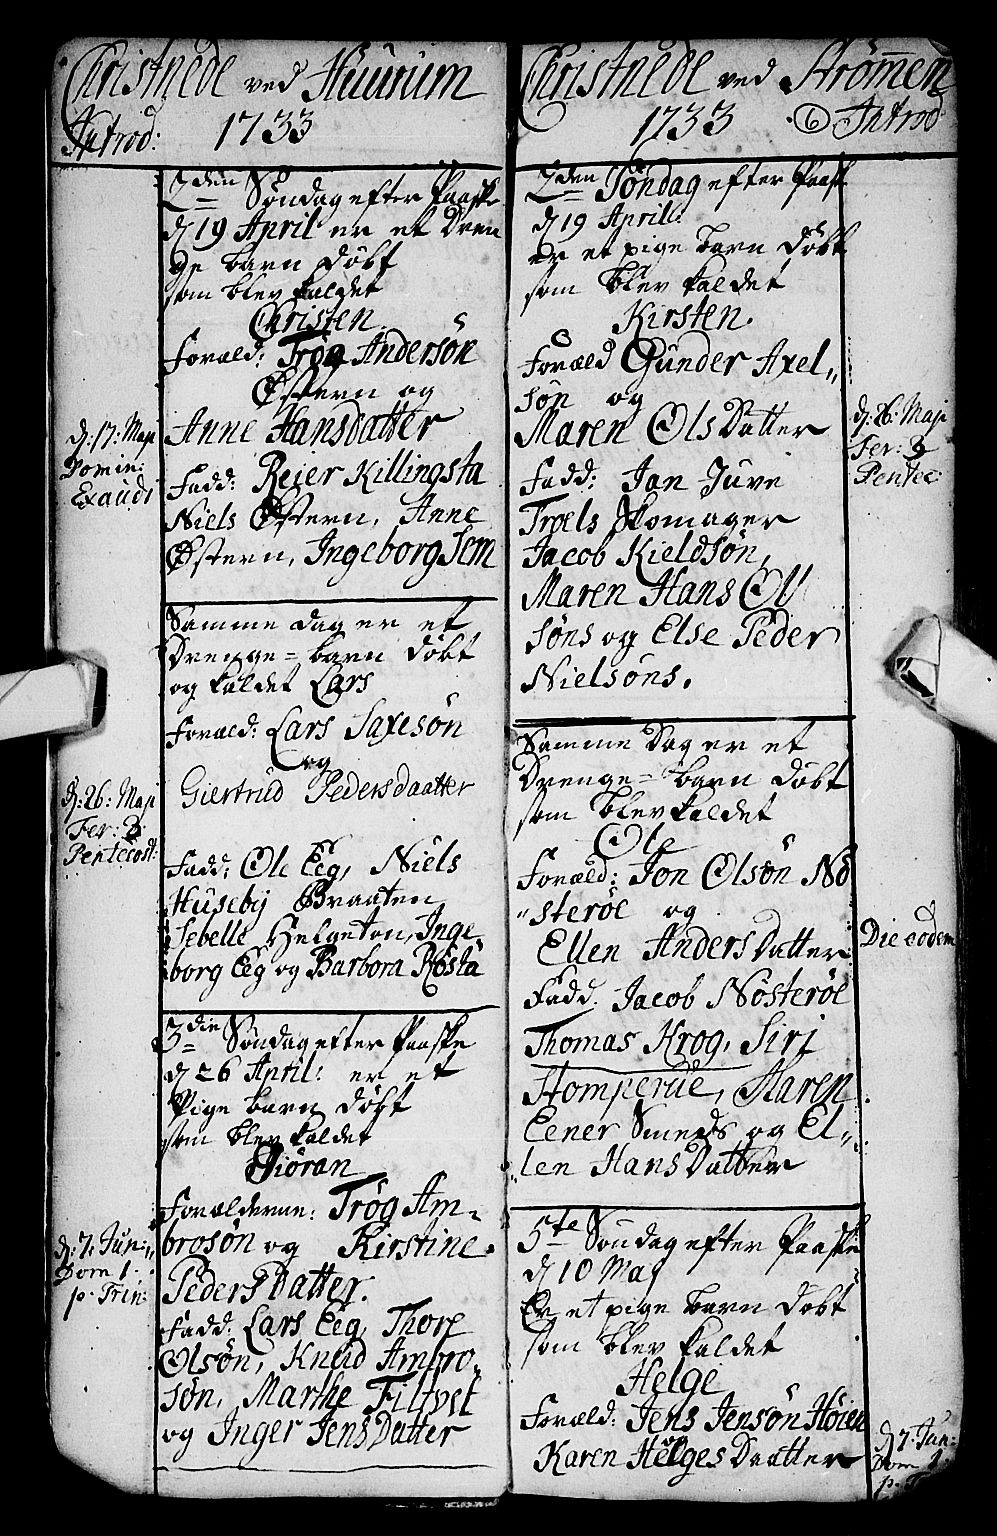 Christnede ved Huurum
Introd: 1733
2den Søndag efter Paaske
d 19 April er et Dren
ge barn døbt
som blev kaldet
Christen.
Foræld: Trøg Andersøn
Østern og
Anne Hansdatter
Fadd: Reier Killingsta
Niels Østern, Anne
Østern, Ingeborg Sem
d: 17: Maji
Domin:
Exaudi
Samme dag er et
Drenge=barn døbt
og kaldet Lars
Foræld: Lars Saxesøn
og
Giertrud Pedersdaatter
Fadd: Ole Eeg, Niels
Huseby Braaten
Sebelle Helgeton, Inge
borg Eeg og Barbora Røsta
d: 26: Maji
Fer: 3
Pentecost:
3die Søndag efter Paaske
d 26 April: er et
Pige barn døbt
som blev kaldet
Siöran
Forælderne: Trøg Am-
brosøn og Kirstine
PedersDatter.
Fadd: Lars Eeg, Thore
Olsøn, Knud Ambro,
søn, Marthe Filtvet
og Inger JensDatter
d: 7: Jun:
Dom 1.
p. Trin:
Christnede ved Strømen
1733 Introd
2den Søndag efter Paask
d 19 April:
er et pige barn døbt
som blev kaldet
Kirsten.
Foræld Gunder Axel,,
søn og
Maren OlsDatter
Fadd: Jan Juve
Troels Skomager
Jacob Kieldsøn,
Maren Hans Ol
søns og Else Peder
Nielsøns.
d: 26: Maji
Fer: 3
Pentec:
Samme Dag er et
Drenge=barn døbt
som blev kaldet
Ole
Foræld: Jon Olsøn Nö
,,sterøe og
Ellen AndersDatter
Fadd. Jacob Nösterøe
Thomas Krog, Siri
Stomperue, Maren
Eener Smeds og El,,
,,len HansDatter
Die eodem
5te Søndag efter Paaske
d 10 Maj
Er et pige barn døbt
som blev kaldet
Helge
Foræld: Jens Jensøn Høien
og
Karen HelgesDaatter
d 7. Jun:
Dom 1.